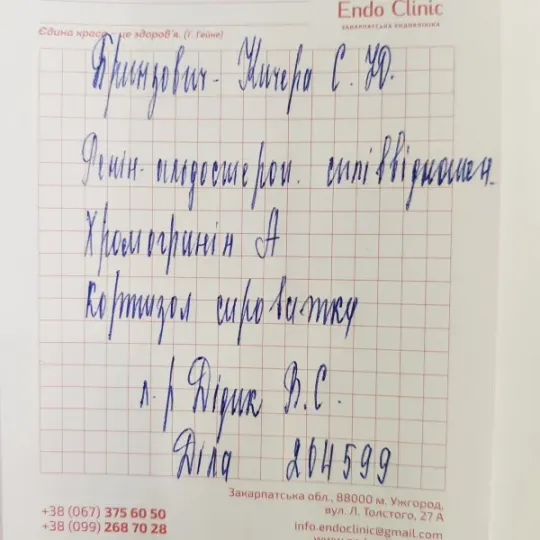 Endo Clinic
ЗАКАРПАТСЬКА ЕНДОКЛІНІКА
Єдина краса - це здоров'я. (Г. Гейне)
Бринзович - Кичера С. Ю.
Ренін-альдостерон. співвіднош.
Хромогранін А
Кортизол сироватки
л. р Дідик В. С.
Діла 204599
Закарпатська обл., 88000 м. Ужгород,
+38 (067) 375 60 50
вул. Л. Толстого, 27 А
+38 (099) 268 70 28
info.endoclinic@gmail.com